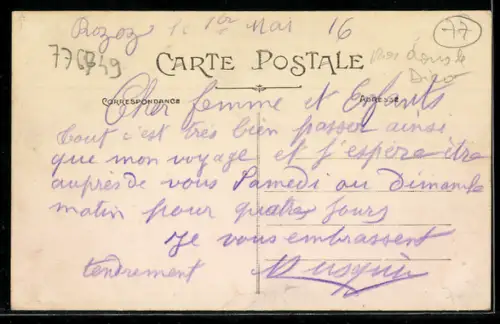 Rozoy le 1er Mai 16
77
77CP49
CARTE POSTALE
pas dans le
Dico
CORRESPONDANCE
ADRESSE
Cher femme et Enfants
tout c'est très bien passer ainsi
que mon voyage et j'espère être
auprès de vous Samedi ou Dimanche
matin pour quatre jours
Je vous embrassent
tendrement